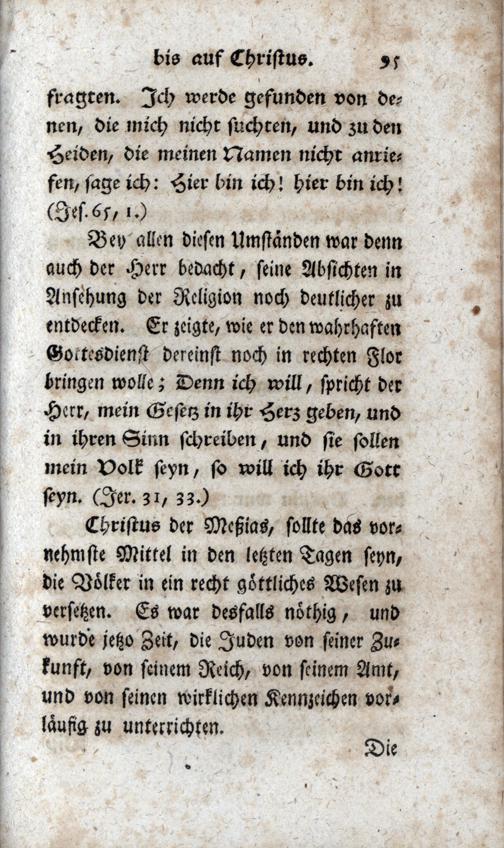 bis auf Christus. 95
fragten. Ich werde gefunden von de⸗
nen, die mich nicht suchten, und zu den
Heiden, die meinen Namen nicht anrie⸗
fen, sage ich: Hier bin ich! hier bin ich!
(Jes. 65, 1.)
Bey allen diesen Umständen war denn
auch der Herr bedacht, seine Absichten in
Ansehung der Religion noch deutlicher zu
entdecken. Er zeigte, wie er den wahrhaften
Gottesdienst dereinst noch in rechten Flor
bringen wolle; Denn ich will, spricht der
Herr, mein Gesetz in ihr Herz geben, und
in ihren Sinn schreiben, und sie sollen
mein Volk seyn, so will ich ihr Gott
seyn. (Jer. 31, 33.)
Christus der Meßias, sollte das vor⸗
nehmste Mittel in den letzten Tagen seyn,
die Völker in ein recht göttliches Wesen zu
versetzen. Es war desfalls nöthig, und
wurde jetzo Zeit, die Juden von seiner Zu⸗
kunft, von seinem Reich, von seinem Amt,
und von seinen wirklichen Kennzeichen vor⸗
läufig zu unterrichten.
Die